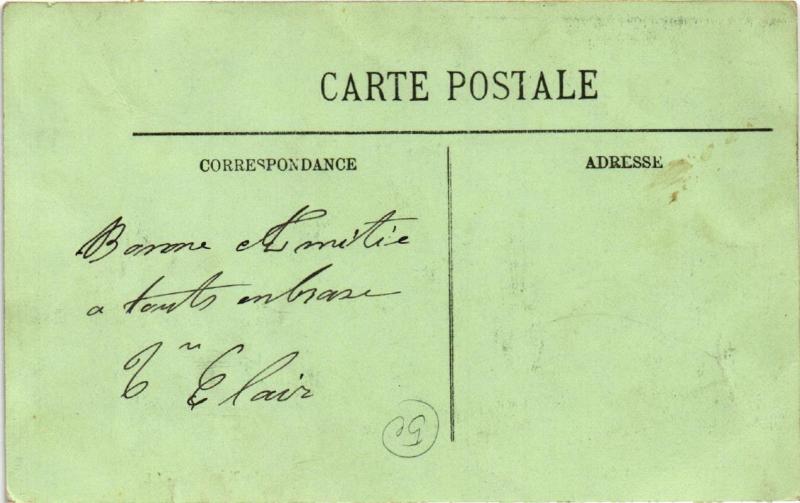 CARTE POSTALE
CORRESPONDANCE
ADRESSE
Bonne Amitie
a touts enbrase
Clair